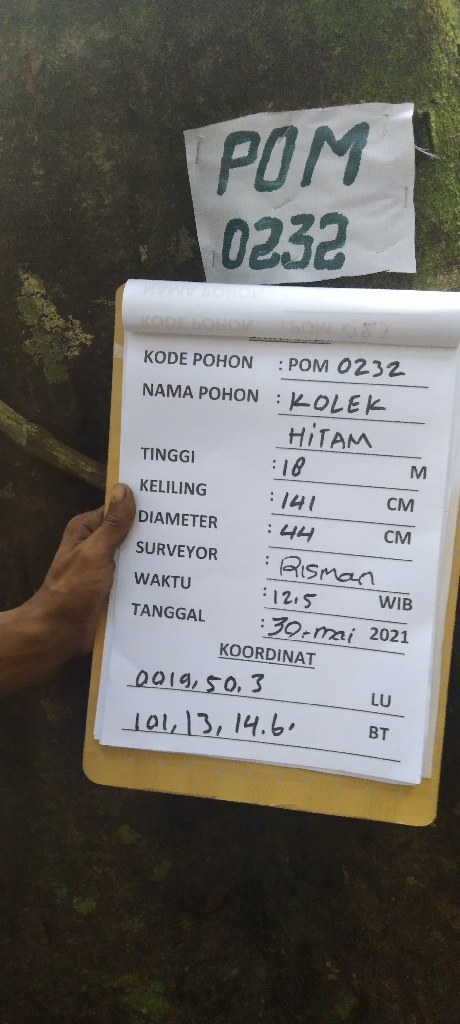 POM
0232
KODE POHON : POM 0232
NAMA POHON : KOLEK
HITAM
TINGGI : 18 M
KELILING : 141 CM
DIAMETER : 44 CM
SURVEYOR : Risman
WAKTU : 12.5 WIB
TANGGAL : 30-mai 2021
KOORDINAT
0019,50.3 LU
101,13,14.6. BT